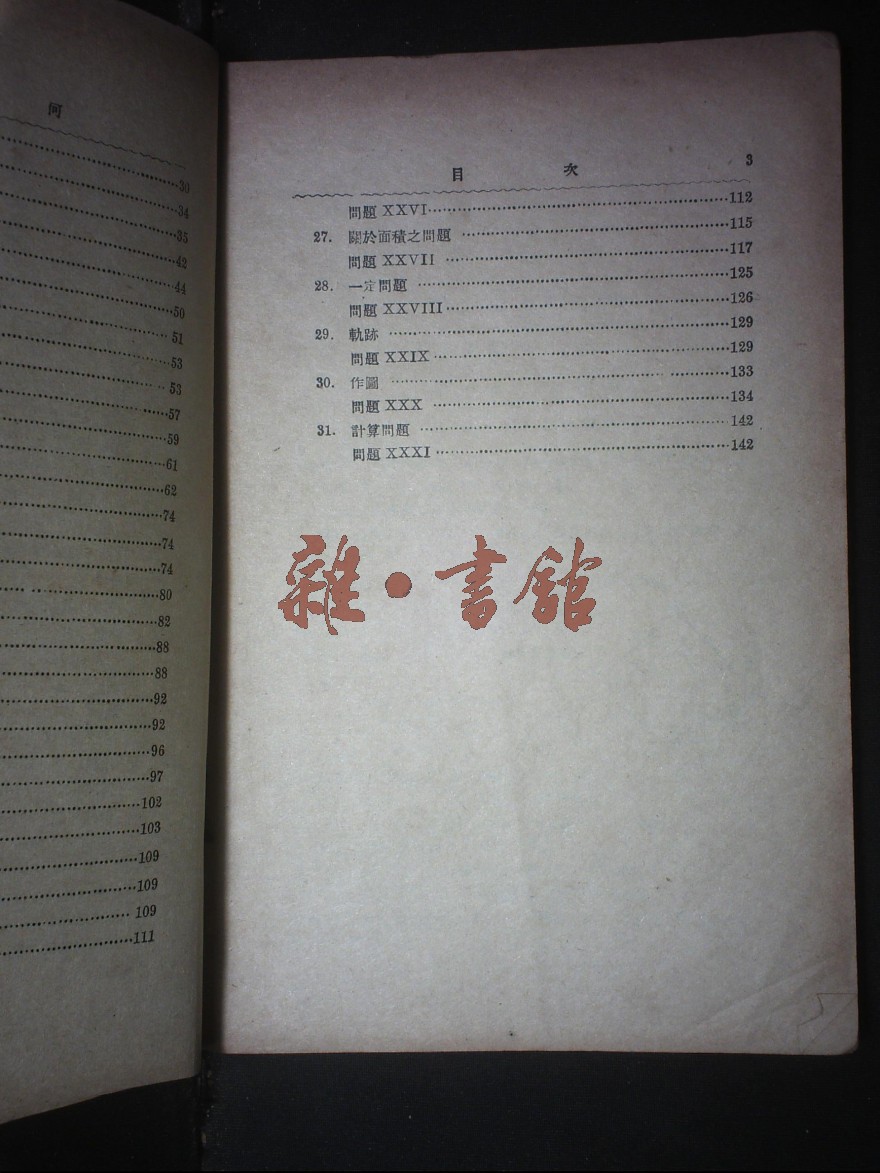 何
30
34
35
42
44
50
51
53
53
57
59
61
62
74
74
74
80
82
88
88
92
92
96
97
102
103
109
109
109
111
目 次 3
問題 XXVI 112
27. 關於面積之問題 115
問題 XXVII 117
28. 一定問題 125
問題 XXVIII 126
29. 軌跡 129
問題 XXIX 129
30. 作圖 133
問題 XXX 134
31. 計算問題 142
問題 XXXI 142
雜·書館